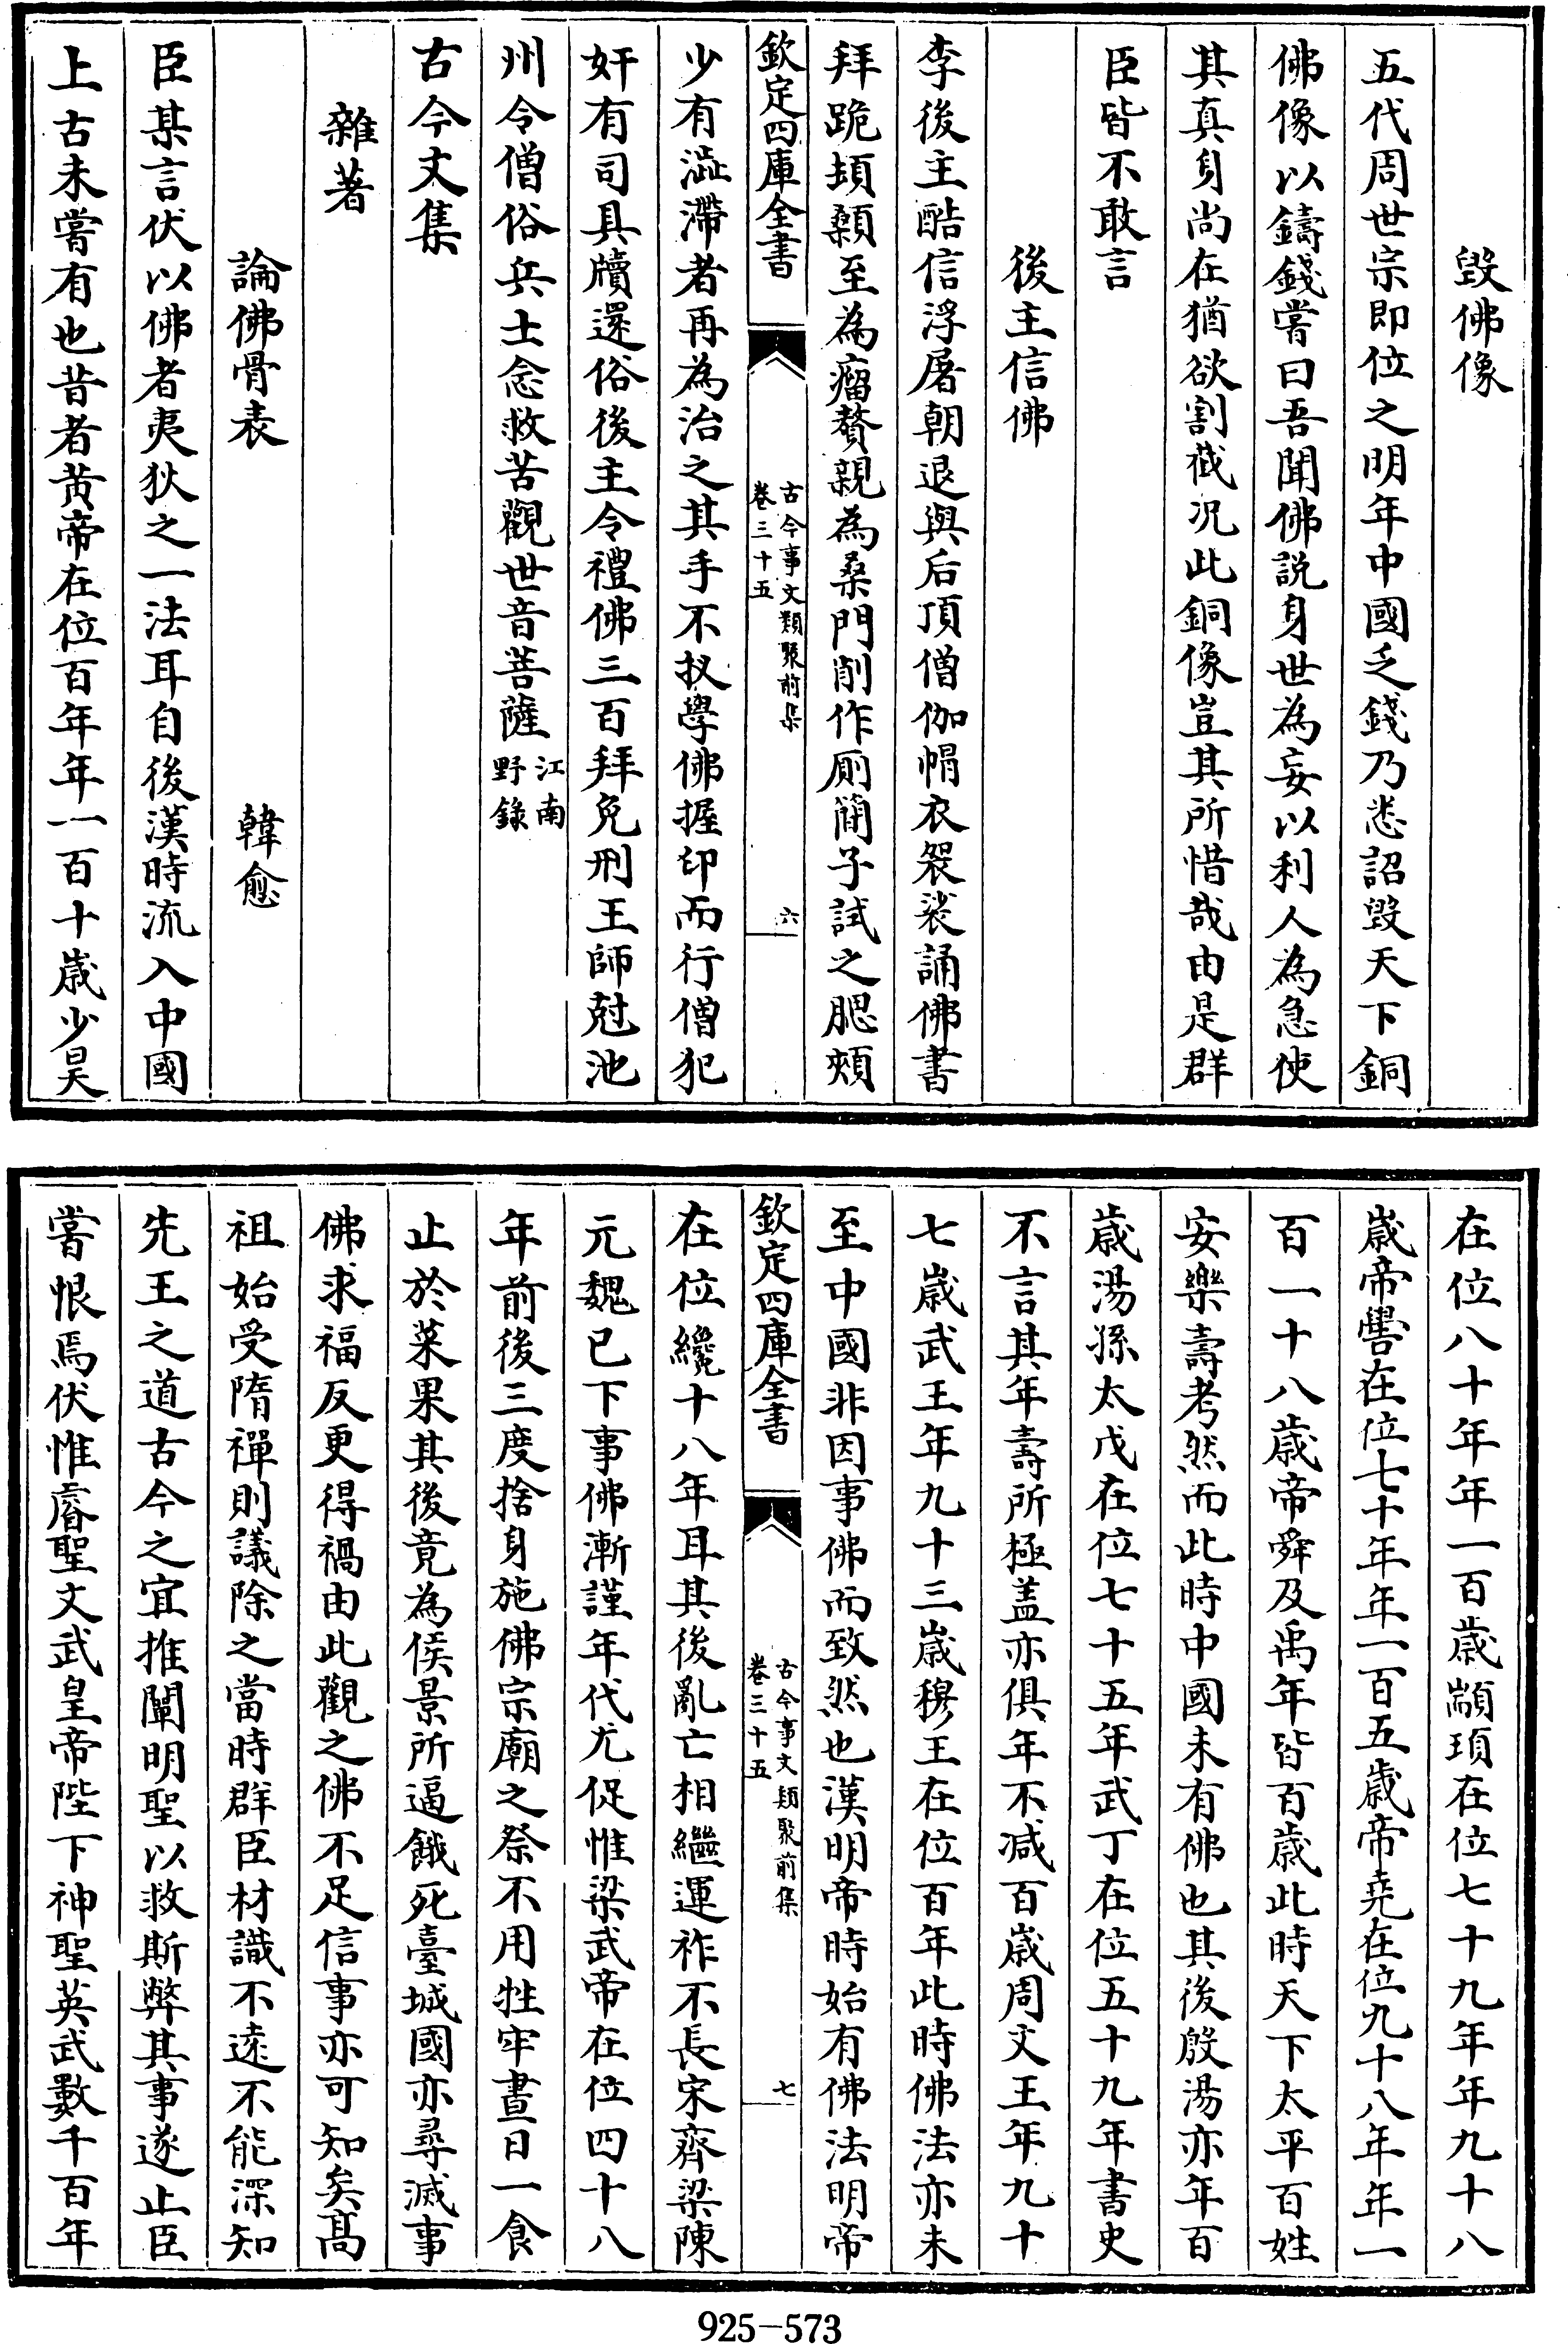 毀佛像
五代周世宗即位之明年中國乏錢乃悉詔毀天下銅
佛像以鑄錢嘗曰吾聞佛説身世為妄以利人為急使
其真身尚在猶欲割截况此銅像豈其所惜哉由是群
臣皆不敢言
後主信佛
李後主酷信浮屠朝退與后頂僧伽帽衣袈裟誦佛書
拜跪頓顙至為瘤贅親為桑門削作厠簡子試之腮頰
欽定四庫全書
古今事文類聚前集
卷三十五
六
少有澁滯者再為治之其手不扠學佛握印而行僧犯
奸有司具牘還俗後主令禮佛三百拜免刑王師尅池
州令僧俗兵士念救苦觀世音菩薩江南
野錄
古今文集
雜著
論佛骨表 韓愈
臣某言伏以佛者夷狄之一法耳自後漢時流入中國
上古未嘗有也昔者黄帝在位百年年一百十歲少昊
在位八十年年一百歲顓頊在位七十九年年九十八
歲帝嚳在位七十年年一百五歲帝堯在位九十八年年一
百一十八歲帝舜及禹年皆百歲此時天下太平百姓
安樂壽考然而此時中國未有佛也其後殷湯亦年百
歲湯孫太戊在位七十五年武丁在位五十九年書史
不言其年壽所極盖亦俱年不减百歲周文王年九十
七歲武王年九十三歲穆王在位百年此時佛法亦未
至中國非因事佛而致然也漢明帝時始有佛法明帝
欽定四庫全書
古今事文類聚前集
卷三十五
七
在位纔十八年耳其後亂亡相繼運祚不長宋齊梁陳
元魏已下事佛漸謹年代尤促惟梁武帝在位四十八
年前後三度捨身施佛宗廟之祭不用牲牢晝日一食
止於菜果其後竟為侯景所逼餓死臺城國亦尋滅事
佛求福反更得禍由此觀之佛不足信事亦可知矣髙
祖始受隋禪則議除之當時群臣材識不逺不能深知
先王之道古今之宜推闡明聖以救斯弊其事遂止臣
嘗恨焉伏惟睿聖文武皇帝陛下神聖英武數千百年
925-573